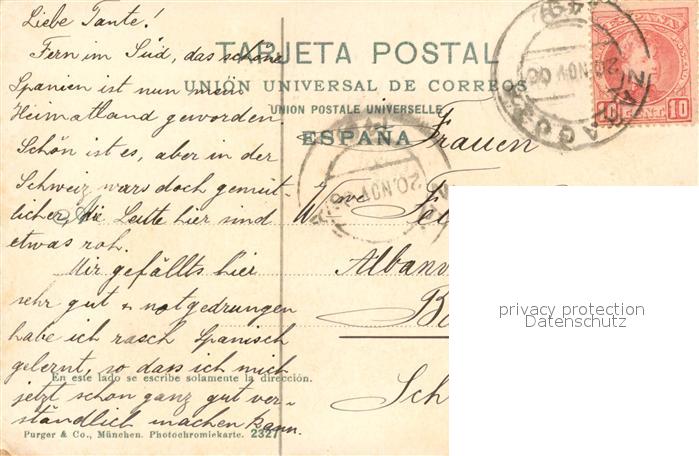 Liebe Tante!
Fern im Süd, das schöne
Spanien ist nun mein
Heimatland geworden.
Schön ist es, aber in der
Schweiz wars doch gemüt-
licher, die Leute hier sind
etwas roh.
Mir gefällts hier
sehr gut & notgedrungen
habe ich rasch Spanisch
gelernt, so dass ich mich
jetzt schon ganz gut ver-
ständlich machen kann.
TARJETA POSTAL
UNIÓN UNIVERSAL DE CORREOS
UNION POSTALE UNIVERSELLE
ESPAÑA
Frauen
Alban
Sch
En este lado se escribe solamente la dirección.
Purger & Co., München. Photochromiekarte. 2327
ESPAÑA
10 CENT 10
ZARAGOZA
20.NOV
20.NOV
privacy protection
Datenschutz